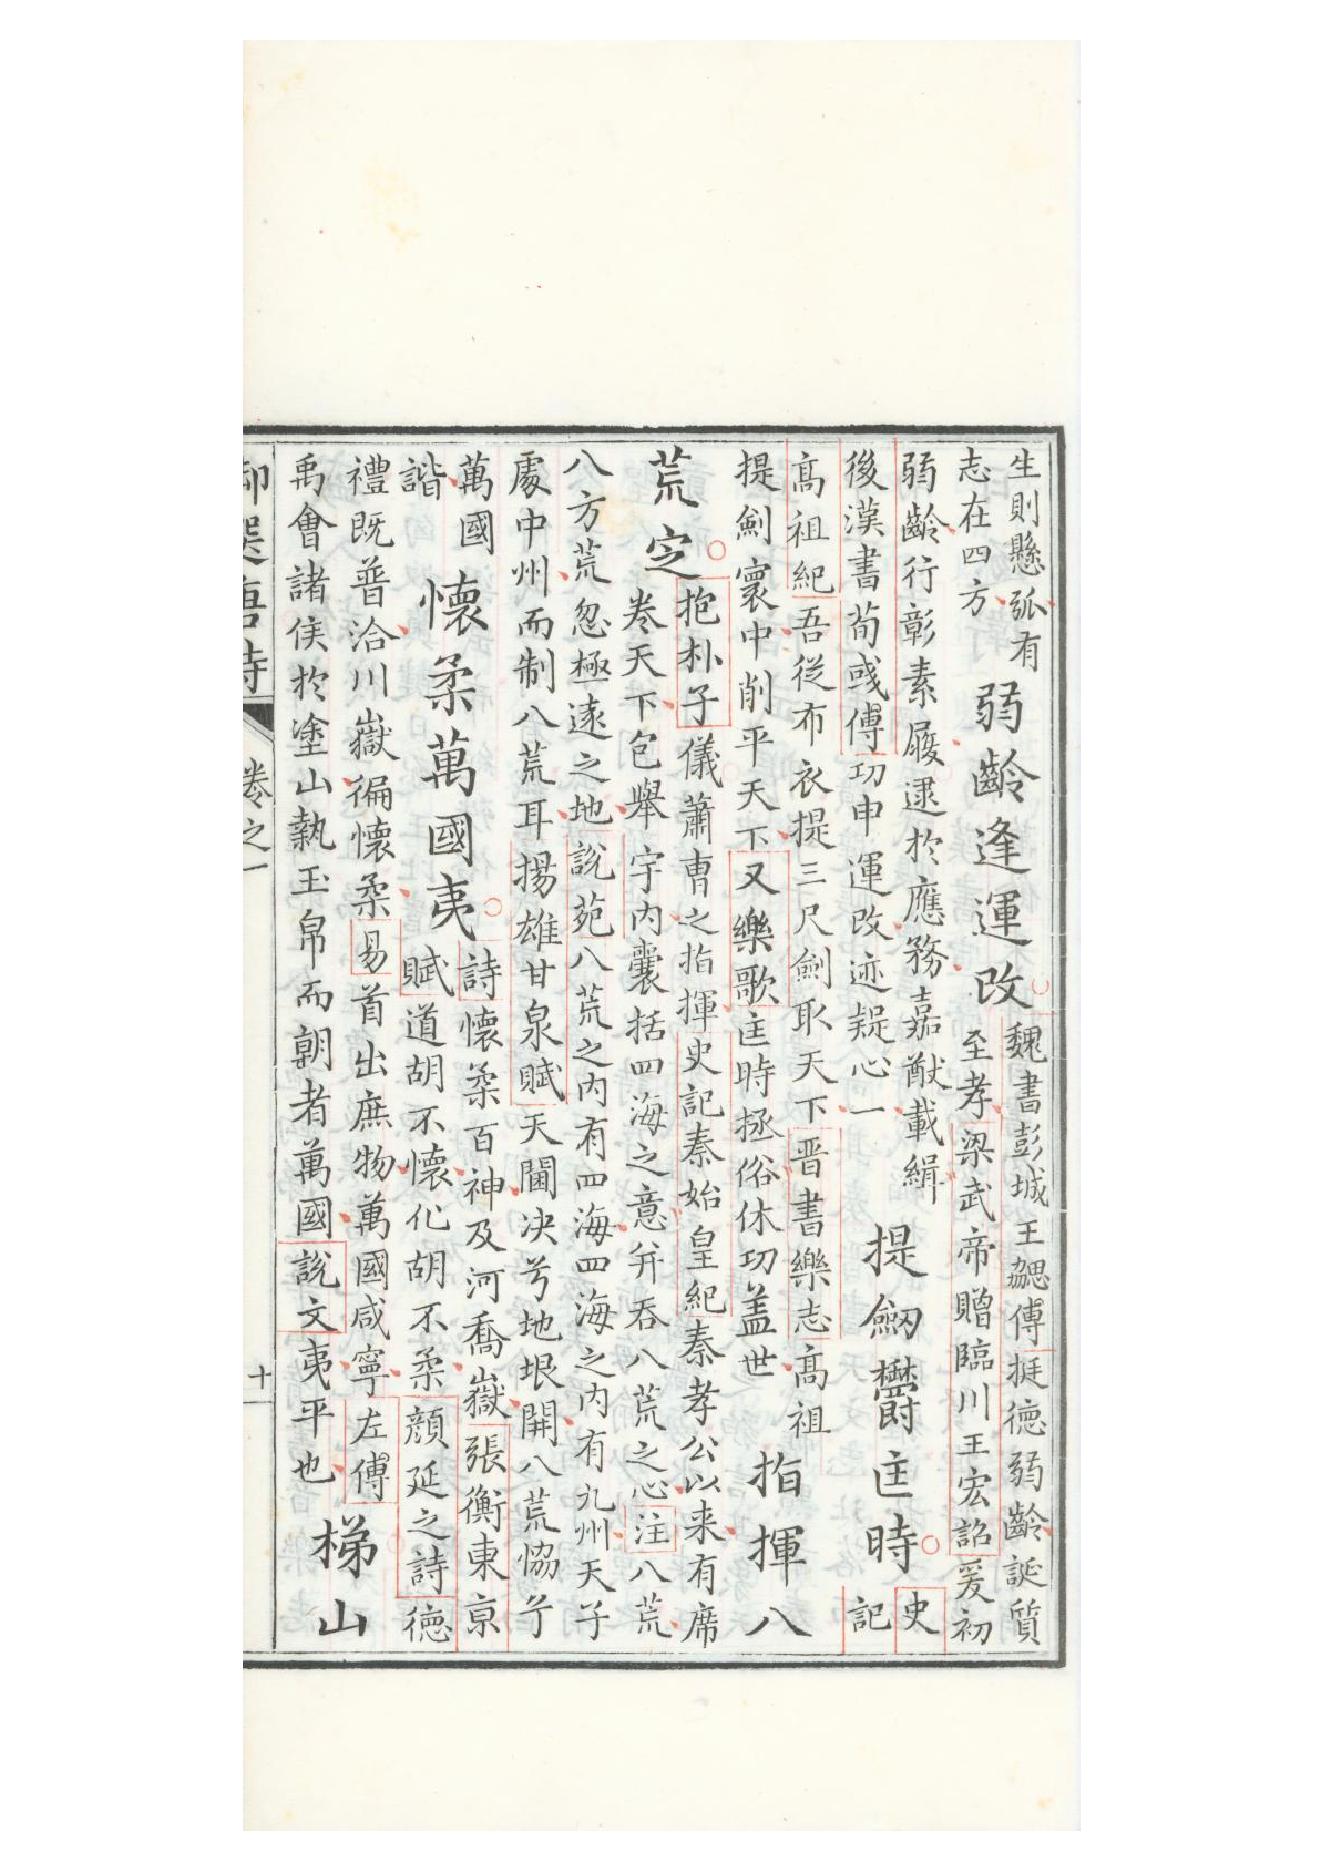 生則懸弧有
志在四方
弱齡逢運改
魏書彭城王勰傅挺德弱齡誕質
至孝梁武帝贈臨川王宏詔爰初
弱齡行彰素履逮於應務嘉猷載緝
後漢書荀彧傅功申運改迹疑心一
提劒鬱匡時
史
記
高祖紀吾從布衣提三尺劍取天下晋書樂志高祖
提劍寰中削平天下又樂歌匡時拯俗休功盖世
指揮八
荒定
抱朴子儀蕭曹之指揮史記秦始皇紀秦孝公以来有席
卷天下包舉宇内囊括四海之意并吞八荒之心注八荒
八方荒忽極遠之地說苑八荒之内有四海四海之内有九州天子
處中州而制八荒耳揚雄甘泉賦天閫决兮地垠開八荒恊兮
萬國
諧
懷柔萬國夷
詩懷柔百神及河喬嶽張衡東亰
賦道胡不懷化胡不柔顔延之詩德
禮既普洽川嶽徧懷柔易首出庶物萬國咸寧左傅
禹會諸侯於塗山執玉帛而朝者萬國說文夷平也
梯山
御選唐詩
卷之一
十